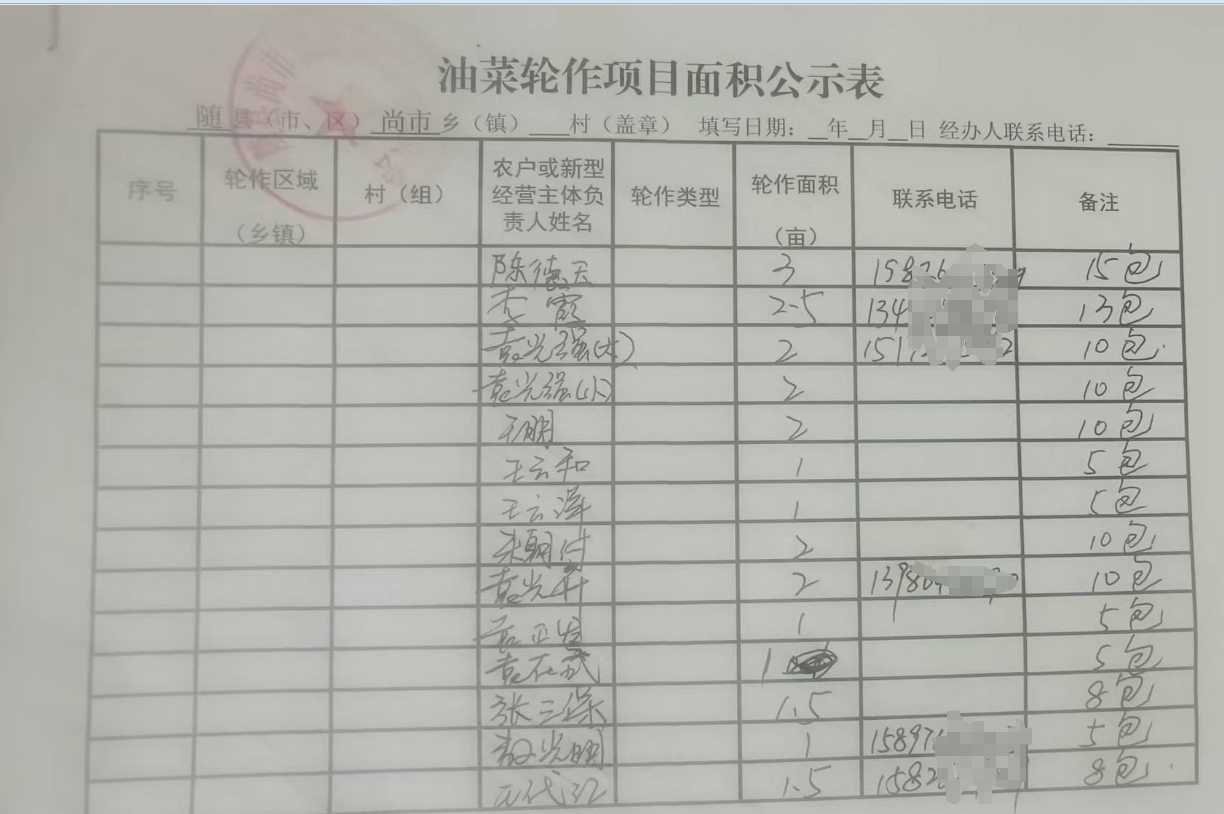 油菜轮作项目面积公示表
随 县（市、区） 尚市 乡（镇） 村（盖章） 填写日期： 年 月 日 经办人联系电话：
序号 轮作区域（乡镇） 村（组） 农户或新型经营主体负责人姓名 轮作类型 轮作面积（亩） 联系电话 备注
陈德天 3 15826 15包
李霞 2.5 134 13包
袁光强(大) 2 151 2 10包
袁光强(小) 2 10包
王明 2 10包
王云和 1 5包
王云泽 1 5包
朝付 2 10包
袁光 2 1398 10包
袁正发 1 5包
袁在武 1 5包
张三保 1.5 8包
光明 1 1589 5包
代 1.5 1582 8包